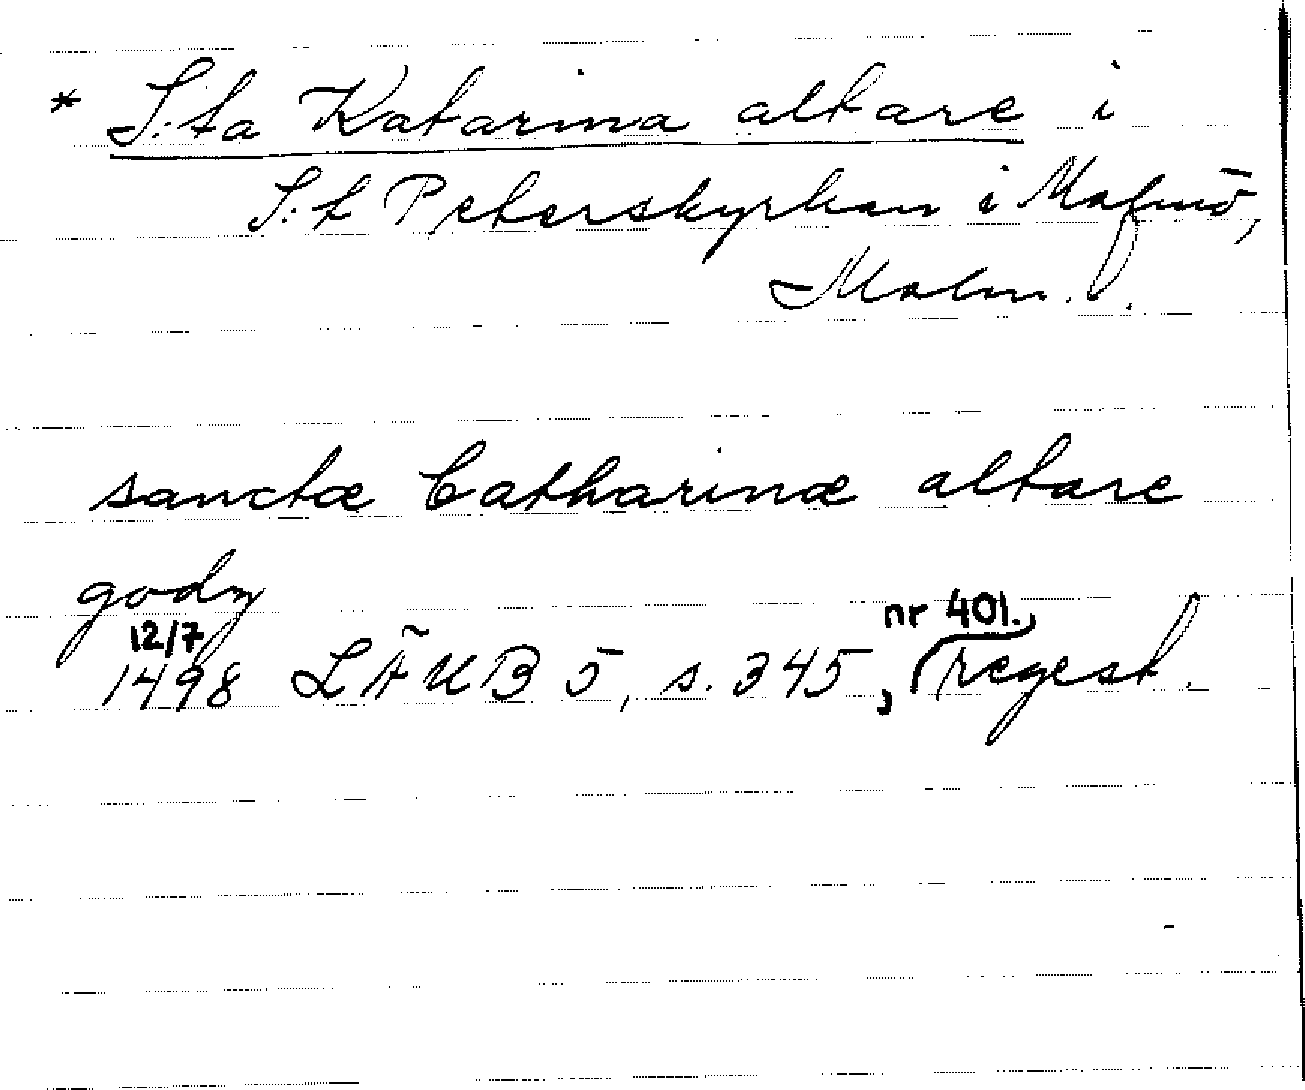 * S:ta Katarina altare i
S:t Peterskyrkan i Malmö,
Malm.
sanctæ Catharinæ altare
godz
12/7 nr 401.
1498 LÄUB 5, s. 345, regest.